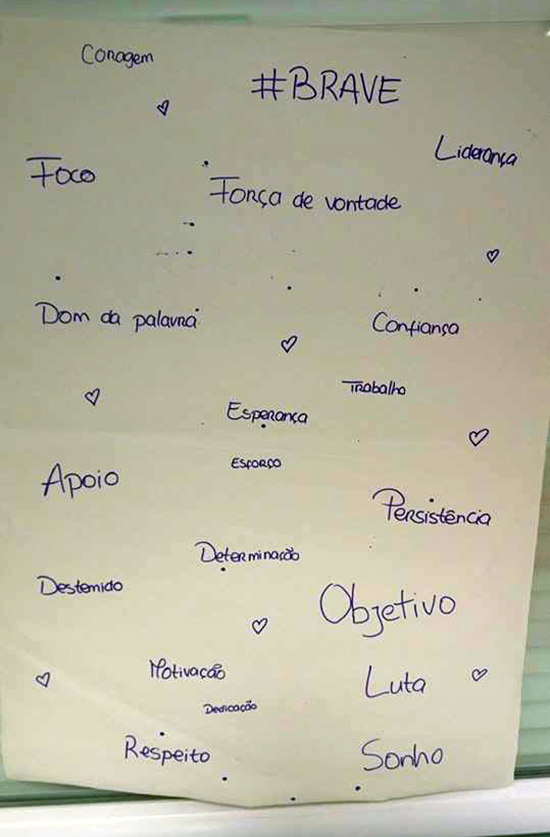 Coragem
#BRAVE
Liderança
Foco
Força de vontade
Dom da palavra
Confiança
Trabalho
Esperança
Esforço
Apoio
Persistência
Determinação
Destemido
Objetivo
Motivação
Luta
Dedicação
Respeito
Sonho